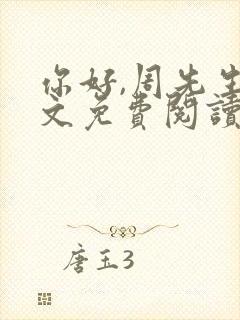 你好,周先生
文免费閱讀
唐玉3